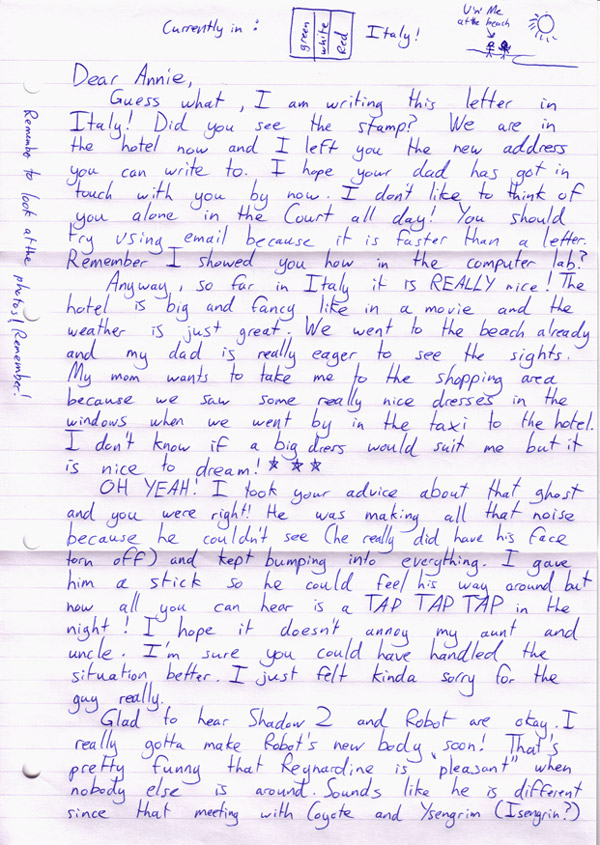 Currently in :
green
white
Red
Italy!
U'n' Me
at the beach
Dear Annie,
Guess what, I am writing this letter in
Italy! Did you see the stamp? We are in
the hotel now and I left you the new address
you can write to. I hope your dad has got in
touch with you by now. I don't like to think of
you alone in the Court all day! You should
try using email because it is faster than a letter.
Remember I showed you how in the computer lab?
Anyway, so far in Italy it is REALLY nice! The
hotel is big and fancy like in a movie and the
weather is just great. We went to the beach already
and my dad is really eager to see the sights.
My mom wants to take me to the shopping area
because we saw some really nice dresses in the
windows when we went by in the taxi to the hotel.
I don't know if a big dress would suit me but it
is nice to dream! ★ ★ ★
OH YEAH! I took your advice about that ghost
and you were right! He was making all that noise
because he couldn't see (he really did have his face
torn off) and kept bumping into everything. I gave
him a stick so he could feel his way around but
now all you can hear is a TAP TAP TAP in the
night! I hope it doesn't annoy my aunt and
uncle. I'm sure you could have handled the
situation better. I just felt kinda sorry for the
guy really.
Glad to hear Shadow 2 and Robot are okay. I
really gotta make Robot's new body soon! That's
pretty funny that Reynardine is "pleasant" when
nobody else is around. Sounds like he is different
since that meeting with Coyote and Ysengrim (Isengrin?)
Remembe to look at the photos! Remember!